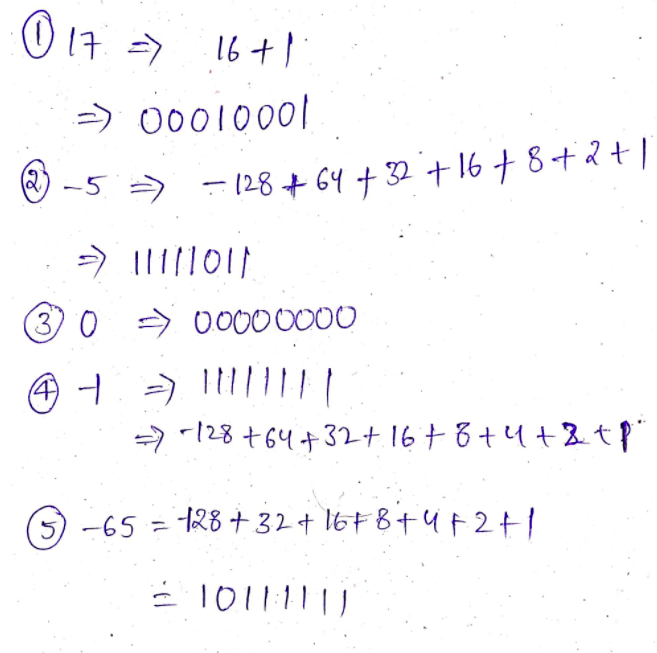 ① 17 ⇒ 16+1
⇒ 00010001
② -5 ⇒ -128+64+32+16+8+2+1
⇒ 11111011
③ 0 ⇒ 00000000
④ -1 ⇒ 11111111
⇒ -128+64+32+16+8+4+2+1
⑤ -65 = -128+32+16+8+4+2+1
= 10111111